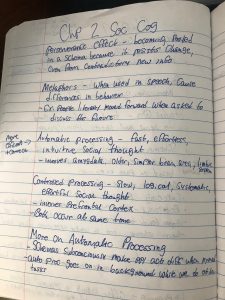 Chp 2 Soc Cog
Perseverance Effect - becoming rooted
in a schema because it resists change,
even from contradictory new info
Metaphors - when used in speech, cause
differences in behavior
Ex. People literally moved forward when asked to
discuss the future
Automatic processing - fast, effortless,
intuitive social thought
- involves amygdala, older, simpler brain area, limbic system
more efficient + correct
Controlled Processing - slow, logical, systematic,
effortful social thought
- involves Prefrontal Cortex
- Both occur at same time
More on Automatic Processing
- Schemas subconsciously make ppl act diff when
- Auto Proc goes on in background while we do other
tasks